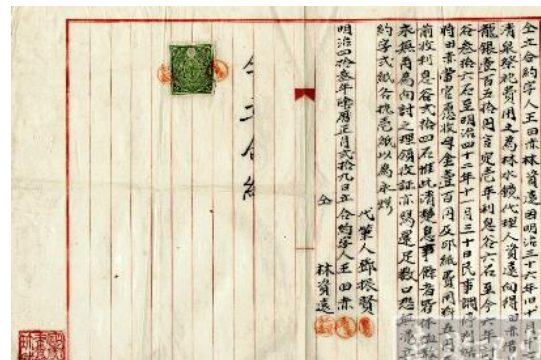 仝立合約字人王田赤林資遠因明治三十六年旧十月十
清泉祭祀費用之為林水錦代理人資遠向得田赤借
龍銀壹百五拾円言定壱年利息谷六石至今六年
谷叁拾六石至明治四十二年十一月三十日民事調停
時田赤當官愿收母金壹百円及印紙費用
前收利息谷弍拾四石惟此清楚息事
永無再為向討之理領收証亦寫還足數口恐無
約字弍紙各执壱紙以為永炤
代筆人鄧振賢
明治四拾叁年陰暦正月弍拾九日立合約字人王田赤
仝 林資遠
仝立合約